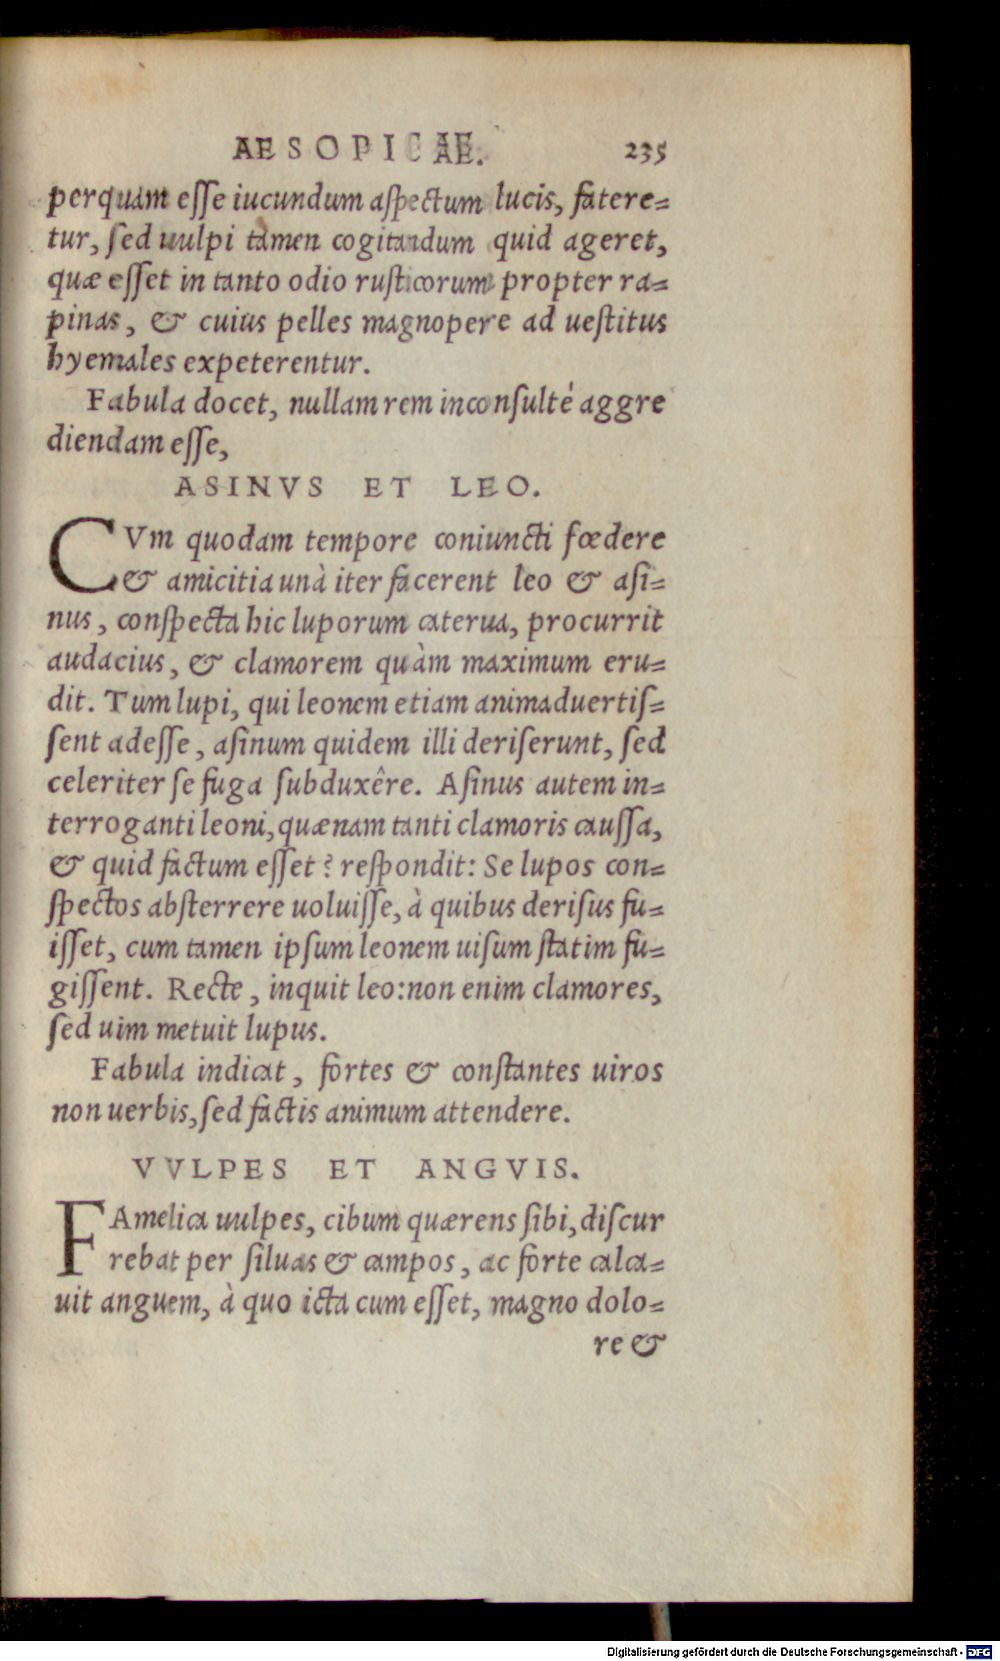 AESOPICAE. 235
perquam eſſe iucundum aſpectum lucis, fatere=
tur, ſed uulpi tamen cogitandum quid ageret,
quæ eſſet in tanto odio ruſticorum propter ra=
pinas, & cuius pelles magnopere ad ueſtitus
hyemales expeterentur.
Fabula docet, nullam rem inconſulté aggre
diendam eſſe,
ASINVS ET LEO.
CVm quodam tempore coniuncti fœdere
& amicitia unà iter facerent leo & aſi=
nus, conſpecta hic luporum caterua, procurrit
audacius, & clamorem quàm maximum eru=
dit. Tum lupi, qui leonem etiam animaduertiſ=
ſent adeſſe, aſinum quidem illi deriſerunt, ſed
celeriter ſe fuga ſubduxêre. Aſinus autem in=
terroganti leoni, quænam tanti clamoris cauſſa,
& quid factum eſſet? reſpondit: Se lupos con=
ſpectos abſterrere uoluiſſe, à quibus deriſus fu=
iſſet, cum tamen ipſum leonem uiſum ſtatim fu=
giſſent. Recte, inquit leo: non enim clamores,
ſed uim metuit lupus.
Fabula indicat, fortes & conſtantes uiros
non uerbis, ſed factis animum attendere.
VVLPES ET ANGVIS.
FAmelica uulpes, cibum quærens ſibi, diſcur
rebat per ſiluas & campos, ac forte calca=
uit anguem, à quo icta cum eſſet, magno dolo=
re &
Digitalisierung gefördert durch die Deutsche Forschungsgemeinschaft - DFG